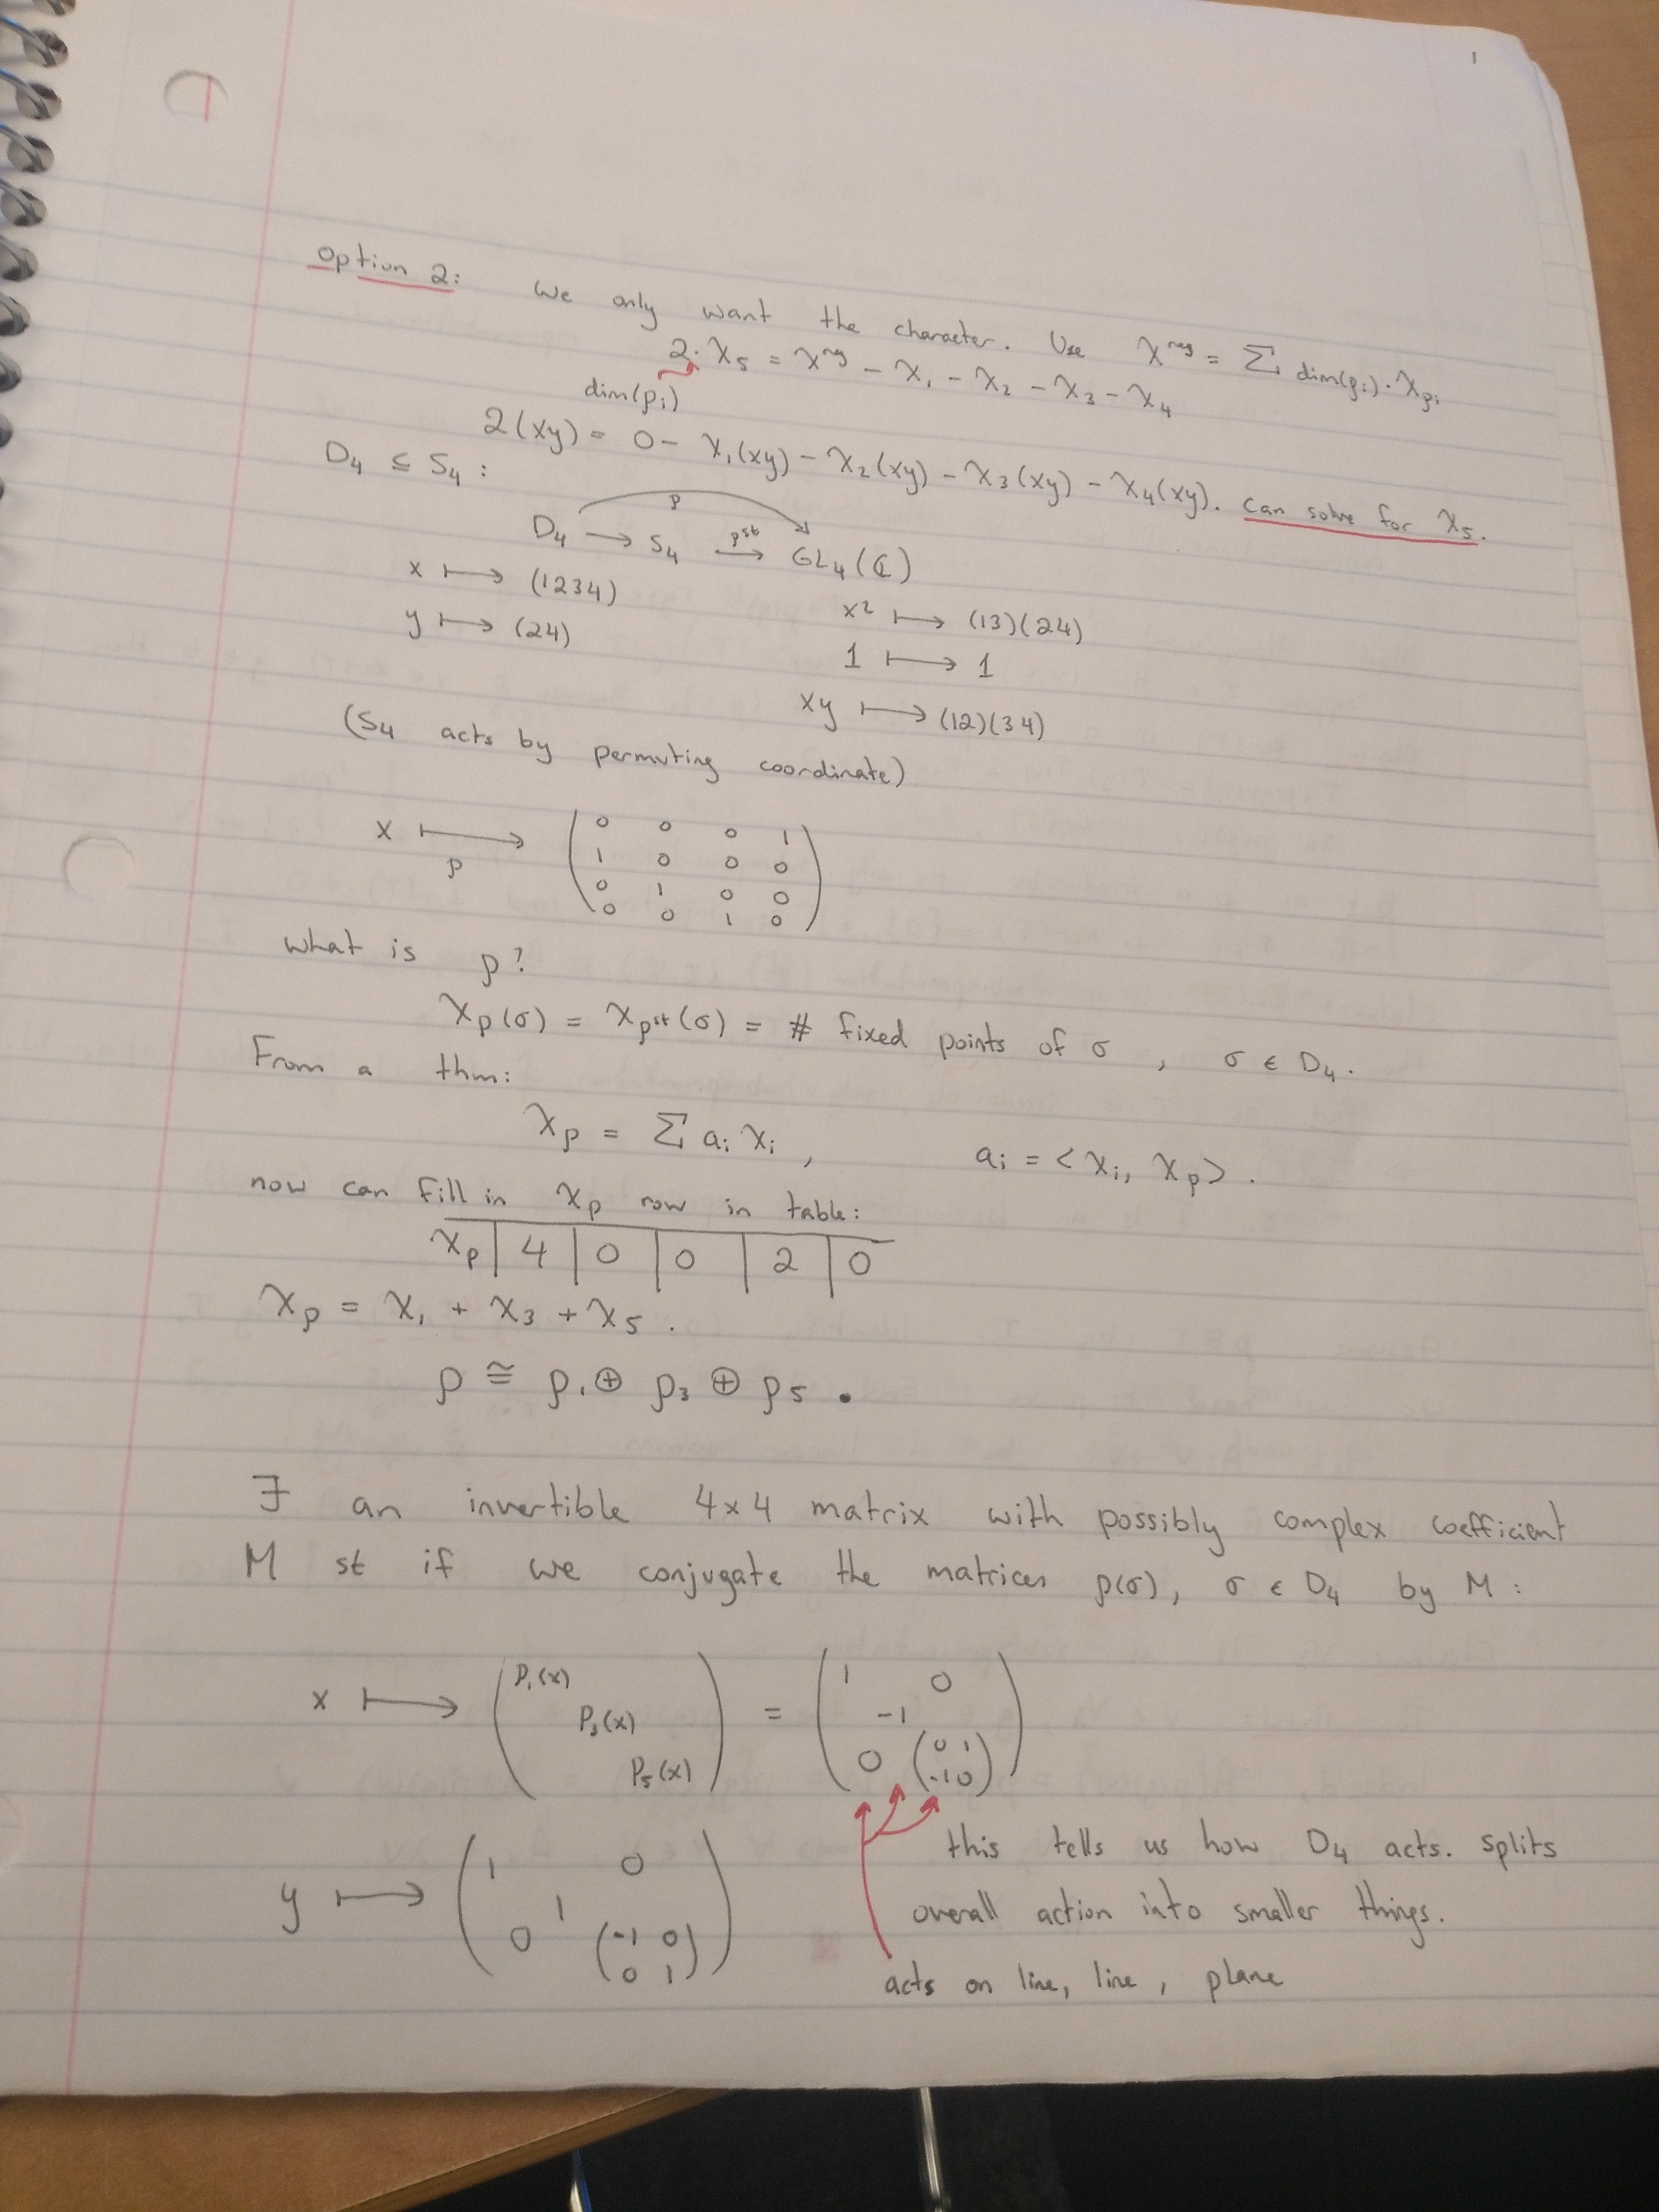 1
Option 2: We only want the character. Use χ^reg = Σ dim(ρᵢ)·χ_ρᵢ
2·χ₅ = χ^reg − χ₁ − χ₂ − χ₃ − χ₄
dim(ρᵢ)
2(xy) = 0 − χ₁(xy) − χ₂(xy) − χ₃(xy) − χ₄(xy). can solve for χ₅.
D₄ ≤ S₄ :
ρ
D₄ → S₄ →^ρst GL₄(ℂ)
x ↦ (1234)
x² ↦ (13)(24)
y ↦ (24)
1 ↦ 1
xy ↦ (12)(34)
(S₄ acts by permuting coordinate)
x ↦_ρ
0 0 0 1
1 0 0 0
0 1 0 0
0 0 1 0
what is ρ?
χ_ρ(σ) = χ_ρst(σ) = # fixed points of σ , σ ∈ D₄.
From a thm:
χ_ρ = Σ aᵢ χᵢ , aᵢ = <χᵢ, χ_ρ> .
now can fill in χ_ρ row in table:
χ_ρ | 4 | 0 | 0 | 2 | 0
χ_ρ = χ₁ + χ₃ + χ₅ .
ρ ≅ ρ₁ ⊕ ρ₃ ⊕ ρ₅ .
∃ an invertible 4x4 matrix with possibly complex coefficient
M st if we conjugate the matrices ρ(σ), σ ∈ D₄ by M :
x ↦ ( ρ₁(x) ρ₃(x) ρ₅(x) ) = ( 1 0 −1 0 ( 0 1 −1 0 ) )
y ↦ ( 1 0 1 0 ( −1 0 0 1 ) )
this tells us how D₄ acts. splits
overall action into smaller things.
acts on line, line, plane